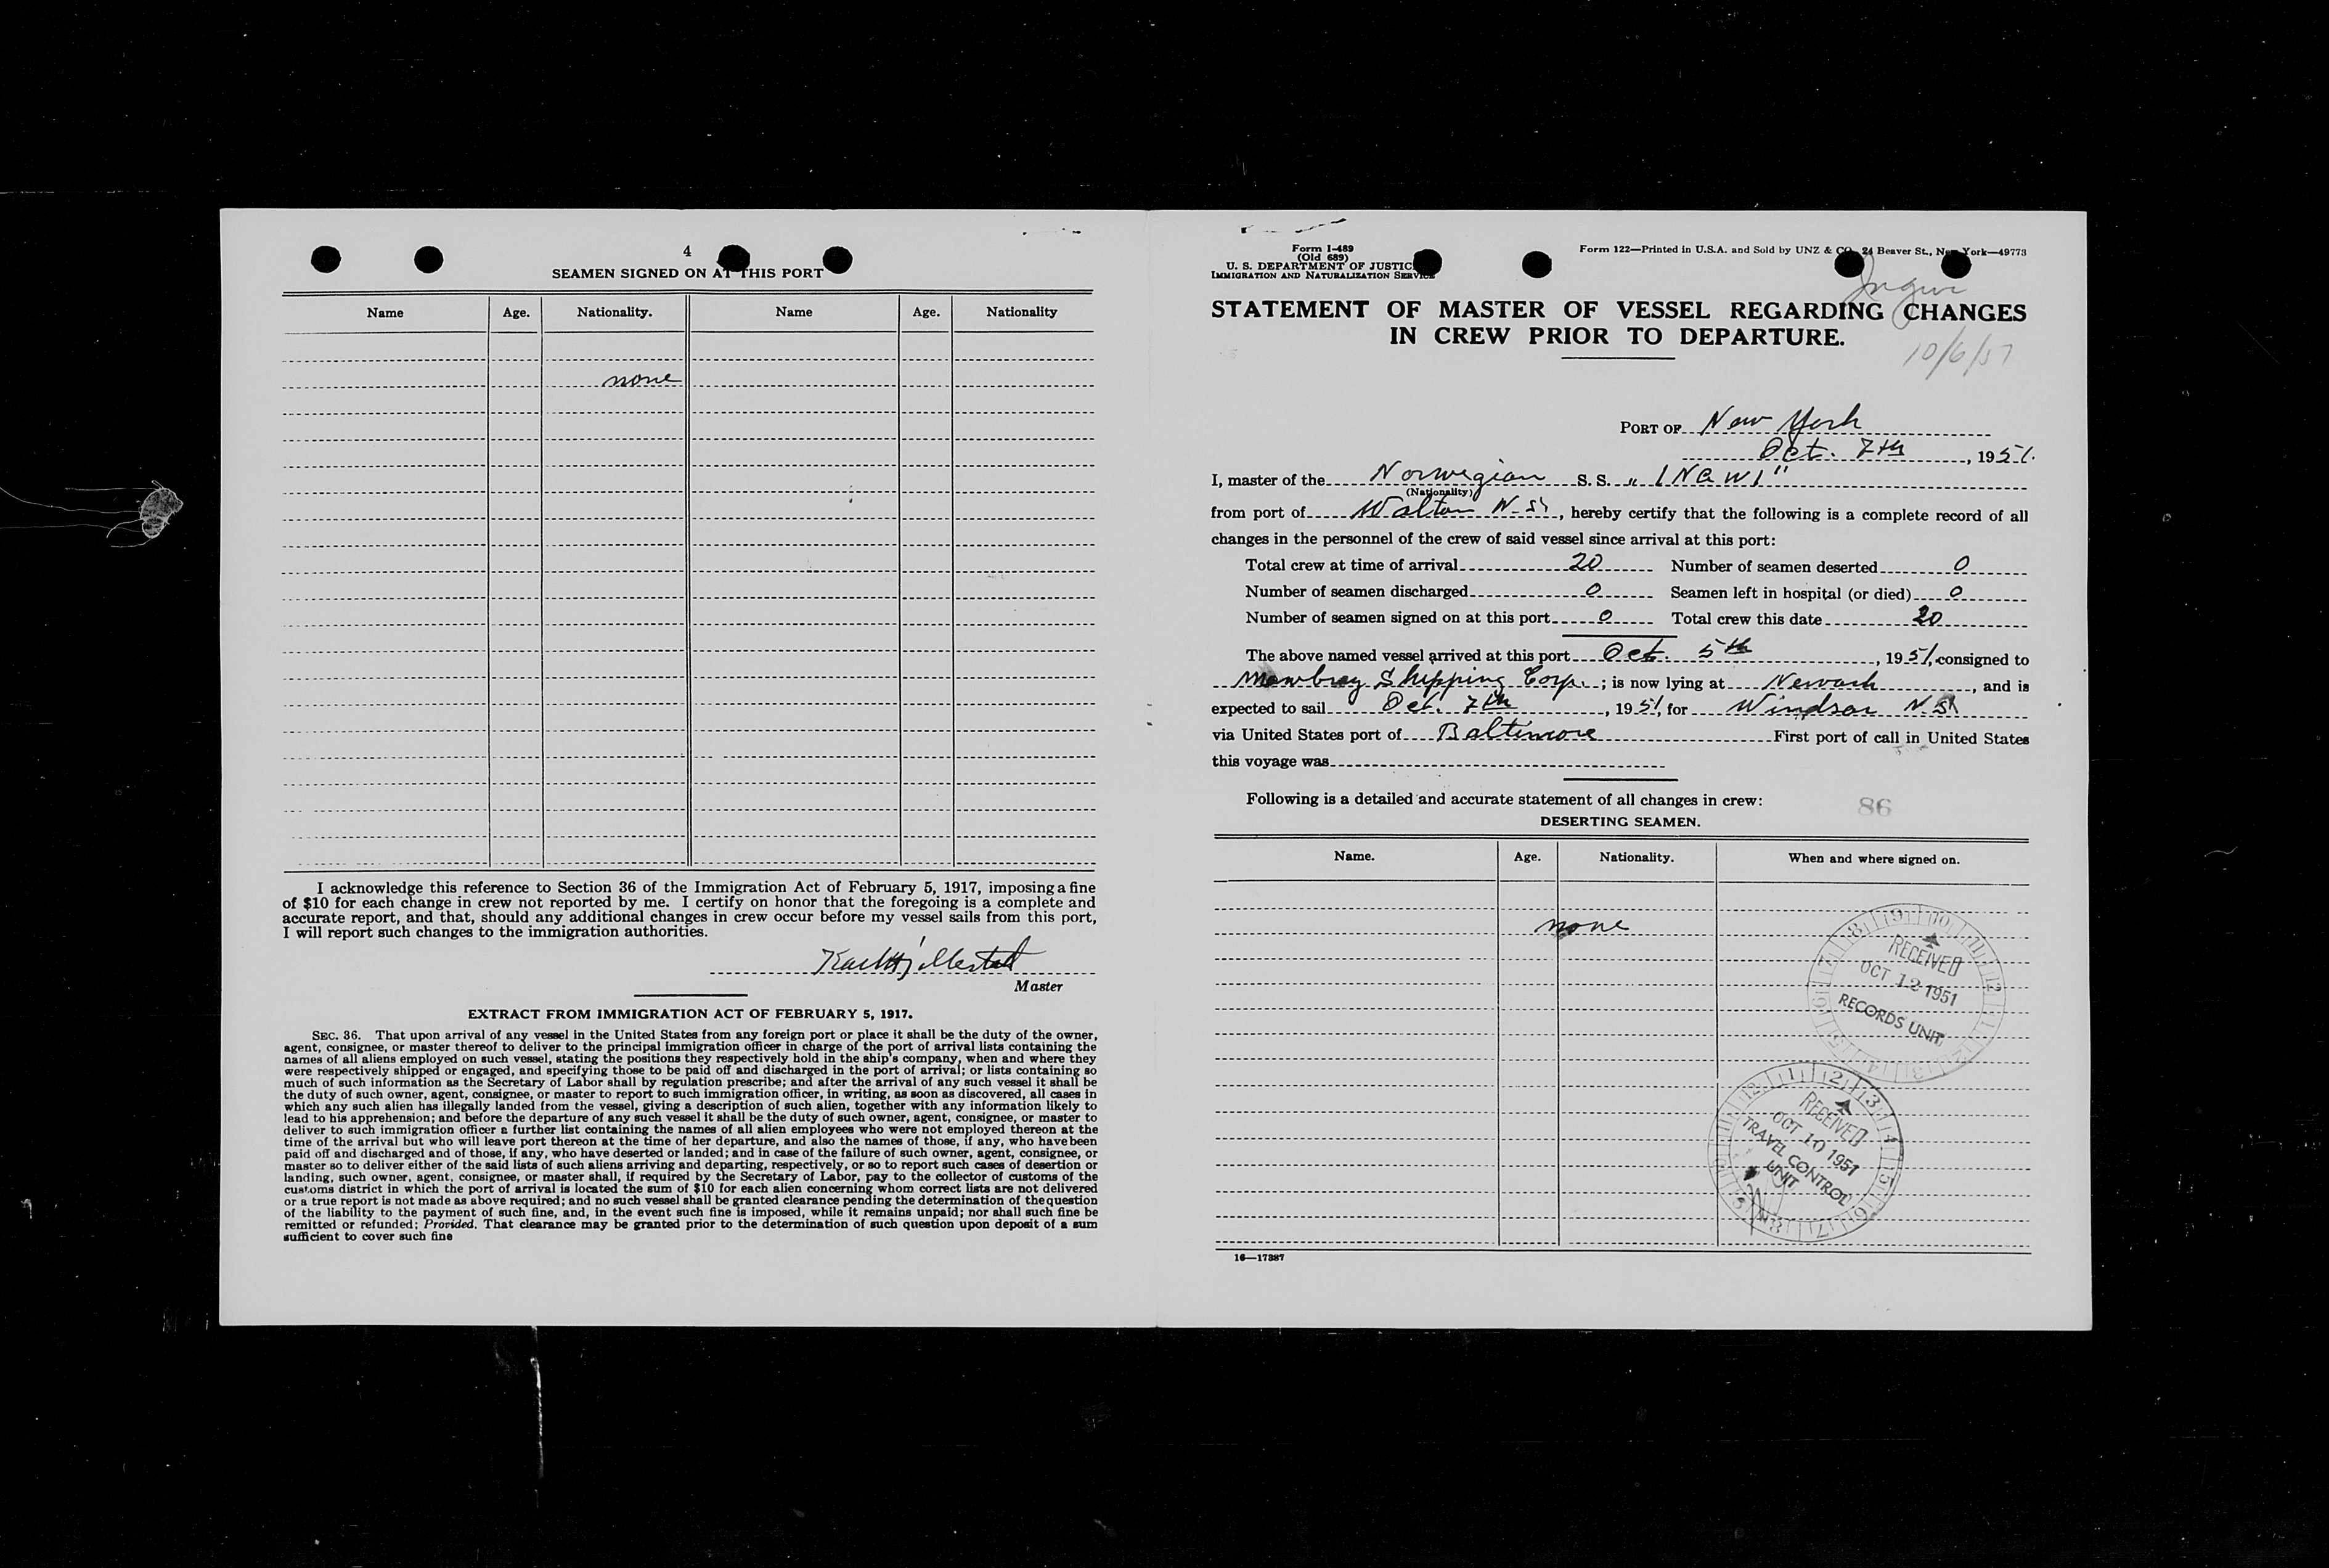 4
SEAMEN SIGNED ON AT THIS PORT
Name Age. Nationality. Name Age. Nationality
none
I acknowledge this reference to Section 36 of the Immigration Act of February 5, 1917, imposing a fine
of $10 for each change in crew not reported by me. I certify on honor that the foregoing is a complete and
accurate report, and that, should any additional changes in crew occur before my vessel sails from this port,
I will report such changes to the immigration authorities.
Master
EXTRACT FROM IMMIGRATION ACT OF FEBRUARY 5, 1917.
SEC. 36. That upon arrival of any vessel in the United States from any foreign port or place it shall be the duty of the owner,
agent, consignee, or master thereof to deliver to the principal immigration officer in charge of the port of arrival lists containing the
names of all aliens employed on such vessel, stating the positions they respectively hold in the ship's company, when and where they
were respectively shipped or engaged, and specifying those to be paid off and discharged in the port of arrival; or lists containing so
much of such information as the Secretary of Labor shall by regulation prescribe; and after the arrival of any such vessel it shall be
the duty of such owner, agent, consignee, or master to report to such immigration officer, in writing, as soon as discovered, all cases in
which any such alien has illegally landed from the vessel, giving a description of such alien, together with any information likely to
lead to his apprehension; and before the departure of any such vessel it shall be the duty of such owner, agent, consignee, or master to
deliver to such immigration officer a further list containing the names of all alien employees who were not employed thereon at the
time of the arrival but who will leave port thereon at the time of her departure, and also the names of those, if any, who have been
paid off and discharged and of those, if any, who have deserted or landed; and in case of the failure of such owner, agent, consignee, or
master so to deliver either of the said lists of such aliens arriving and departing, respectively, or so to report such cases of desertion or
landing, such owner, agent, consignee, or master shall, if required by the Secretary of Labor, pay to the collector of customs of the
customs district in which the port of arrival is located the sum of $10 for each alien concerning whom correct lists are not delivered
or a true report is not made as above required; and no such vessel shall be granted clearance pending the determination of the question
of the liability to the payment of such fine, and, in the event such fine is imposed, while it remains unpaid; nor shall such fine be
remitted or refunded; Provided, That clearance may be granted prior to the determination of such question upon deposit of a sum
sufficient to cover such fine
Form I-489
(Old 689)
U. S. DEPARTMENT OF JUSTICE
IMMIGRATION AND NATURALIZATION SERVICE
Form 122—Printed in U.S.A. and Sold by UNZ & CO., 24 Beaver St., New York—49773
Ingwi
STATEMENT OF MASTER OF VESSEL REGARDING CHANGES
IN CREW PRIOR TO DEPARTURE.
10/6/51
PORT OF New York
Oct. 7th, 1951.
I, master of the Norwegian S. S. "INGWI"
(Nationality)
from port of Walton N-S, hereby certify that the following is a complete record of all
changes in the personnel of the crew of said vessel since arrival at this port:
Total crew at time of arrival 20 Number of seamen deserted 0
Number of seamen discharged 0 Seamen left in hospital (or died) 0
Number of seamen signed on at this port 0 Total crew this date 20
The above named vessel arrived at this port Oct. 5th, 1951, consigned to
Mowbray Shipping Corp.; is now lying at Newark, and is
expected to sail Oct. 7th, 1951, for Windsor N.S.
via United States port of Baltimore First port of call in United States
this voyage was
Following is a detailed and accurate statement of all changes in crew:
86
DESERTING SEAMEN.
Name. Age. Nationality. When and where signed on.
none
RECEIVED
OCT 12 1951
RECORDS UNIT
RECEIVED
OCT 10 1951
TRAVEL CONTROL
UNIT
16—17387